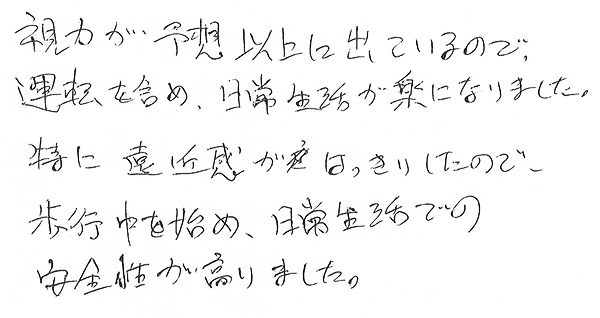 視力が予想以上に出ているので、
運転を含め、日常生活が楽になりました。
特に遠近感がはっきりしたので、
歩行中を始め、日常生活での
安全性が高りました。